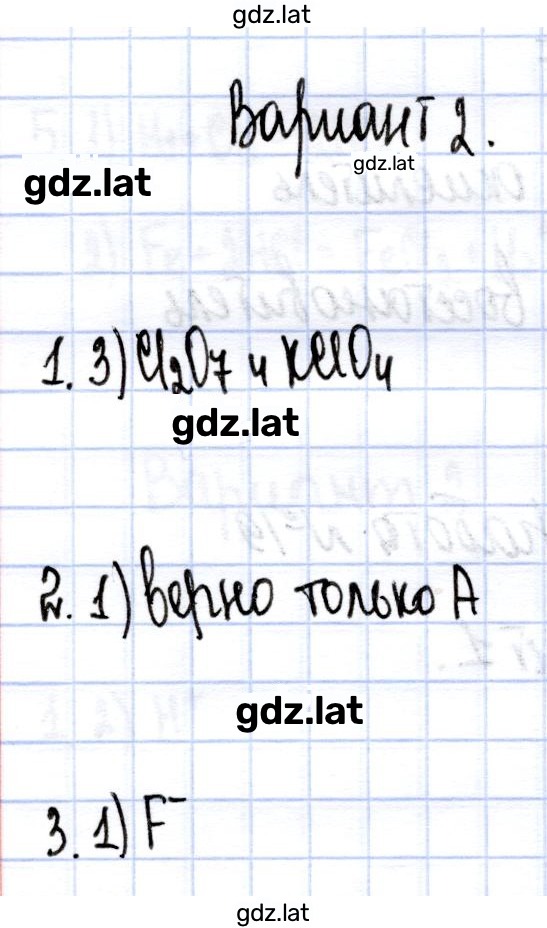 gdz.lat
Вариант 2.
gdz.lat
gdz.lat
1. 3) Cl₂O₇ и KClO₄
gdz.lat
2. 1) верно только А
gdz.lat
3. 1) F⁻
gdz.lat